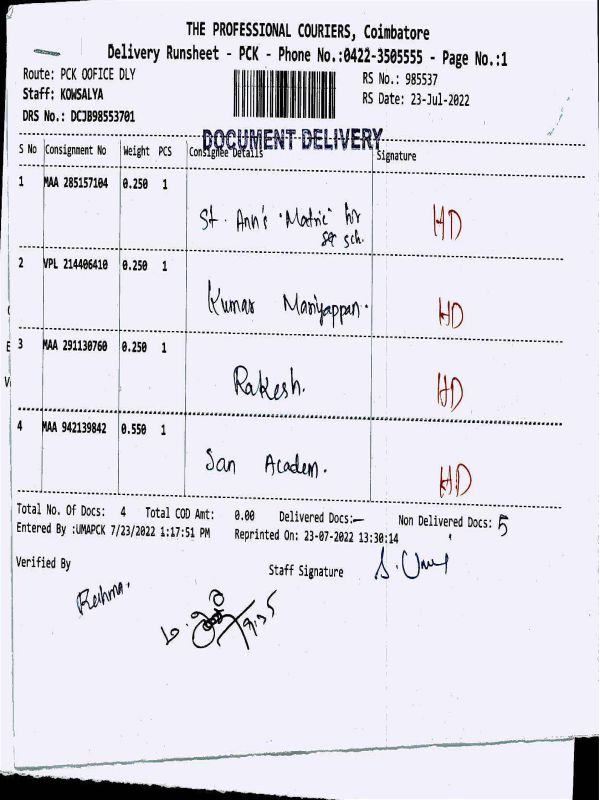 THE PROFESSIONAL COURIERS, Coimbatore
Delivery Runsheet - PCK - Phone No.:0422-3505555 - Page No.:1
Route: PCK OOFICE DLY
RS No.: 985537
Staff: KOWSALYA
RS Date: 23-Jul-2022
DRS No.: DCJB98553701
DOCUMENT DELIVERY
S No Consignment No Weight PCS Consignee Details Signature
1 MAA 285157104 0.250 1
St. Ann's "Matric" hr HD
se sch.
2 VPL 214406410 0.250 1
Kumar Mariyappan. HD
3 MAA 291130760 0.250 1
Rakesh. HD
4 MAA 942139842 0.550 1
San Academ. HD
Total No. Of Docs: 4 Total COD Amt: 0.00 Delivered Docs:— Non Delivered Docs: 5
Entered By :UMAPCK 7/23/2022 1:17:51 PM Reprinted On: 23-07-2022 13:30:14
Verified By Staff Signature